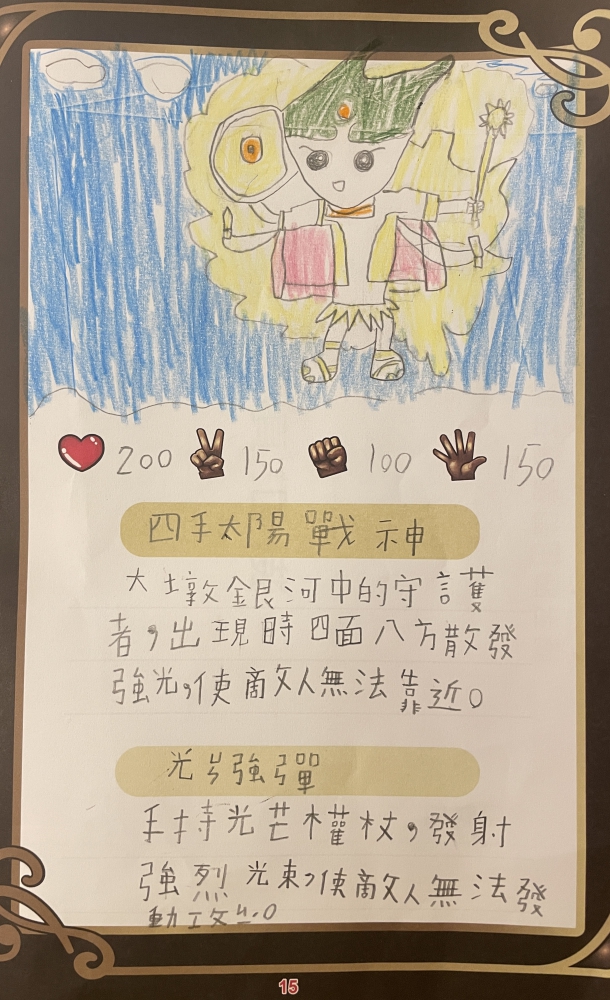 200 150 100 150
四手太陽戰神
大墩銀河中的守護
者，出現時四面八方散發
強光，使敵人無法靠近。
光 強彈
手持光芒權杖，發射
強烈光束，使敵人無法發
動攻
15